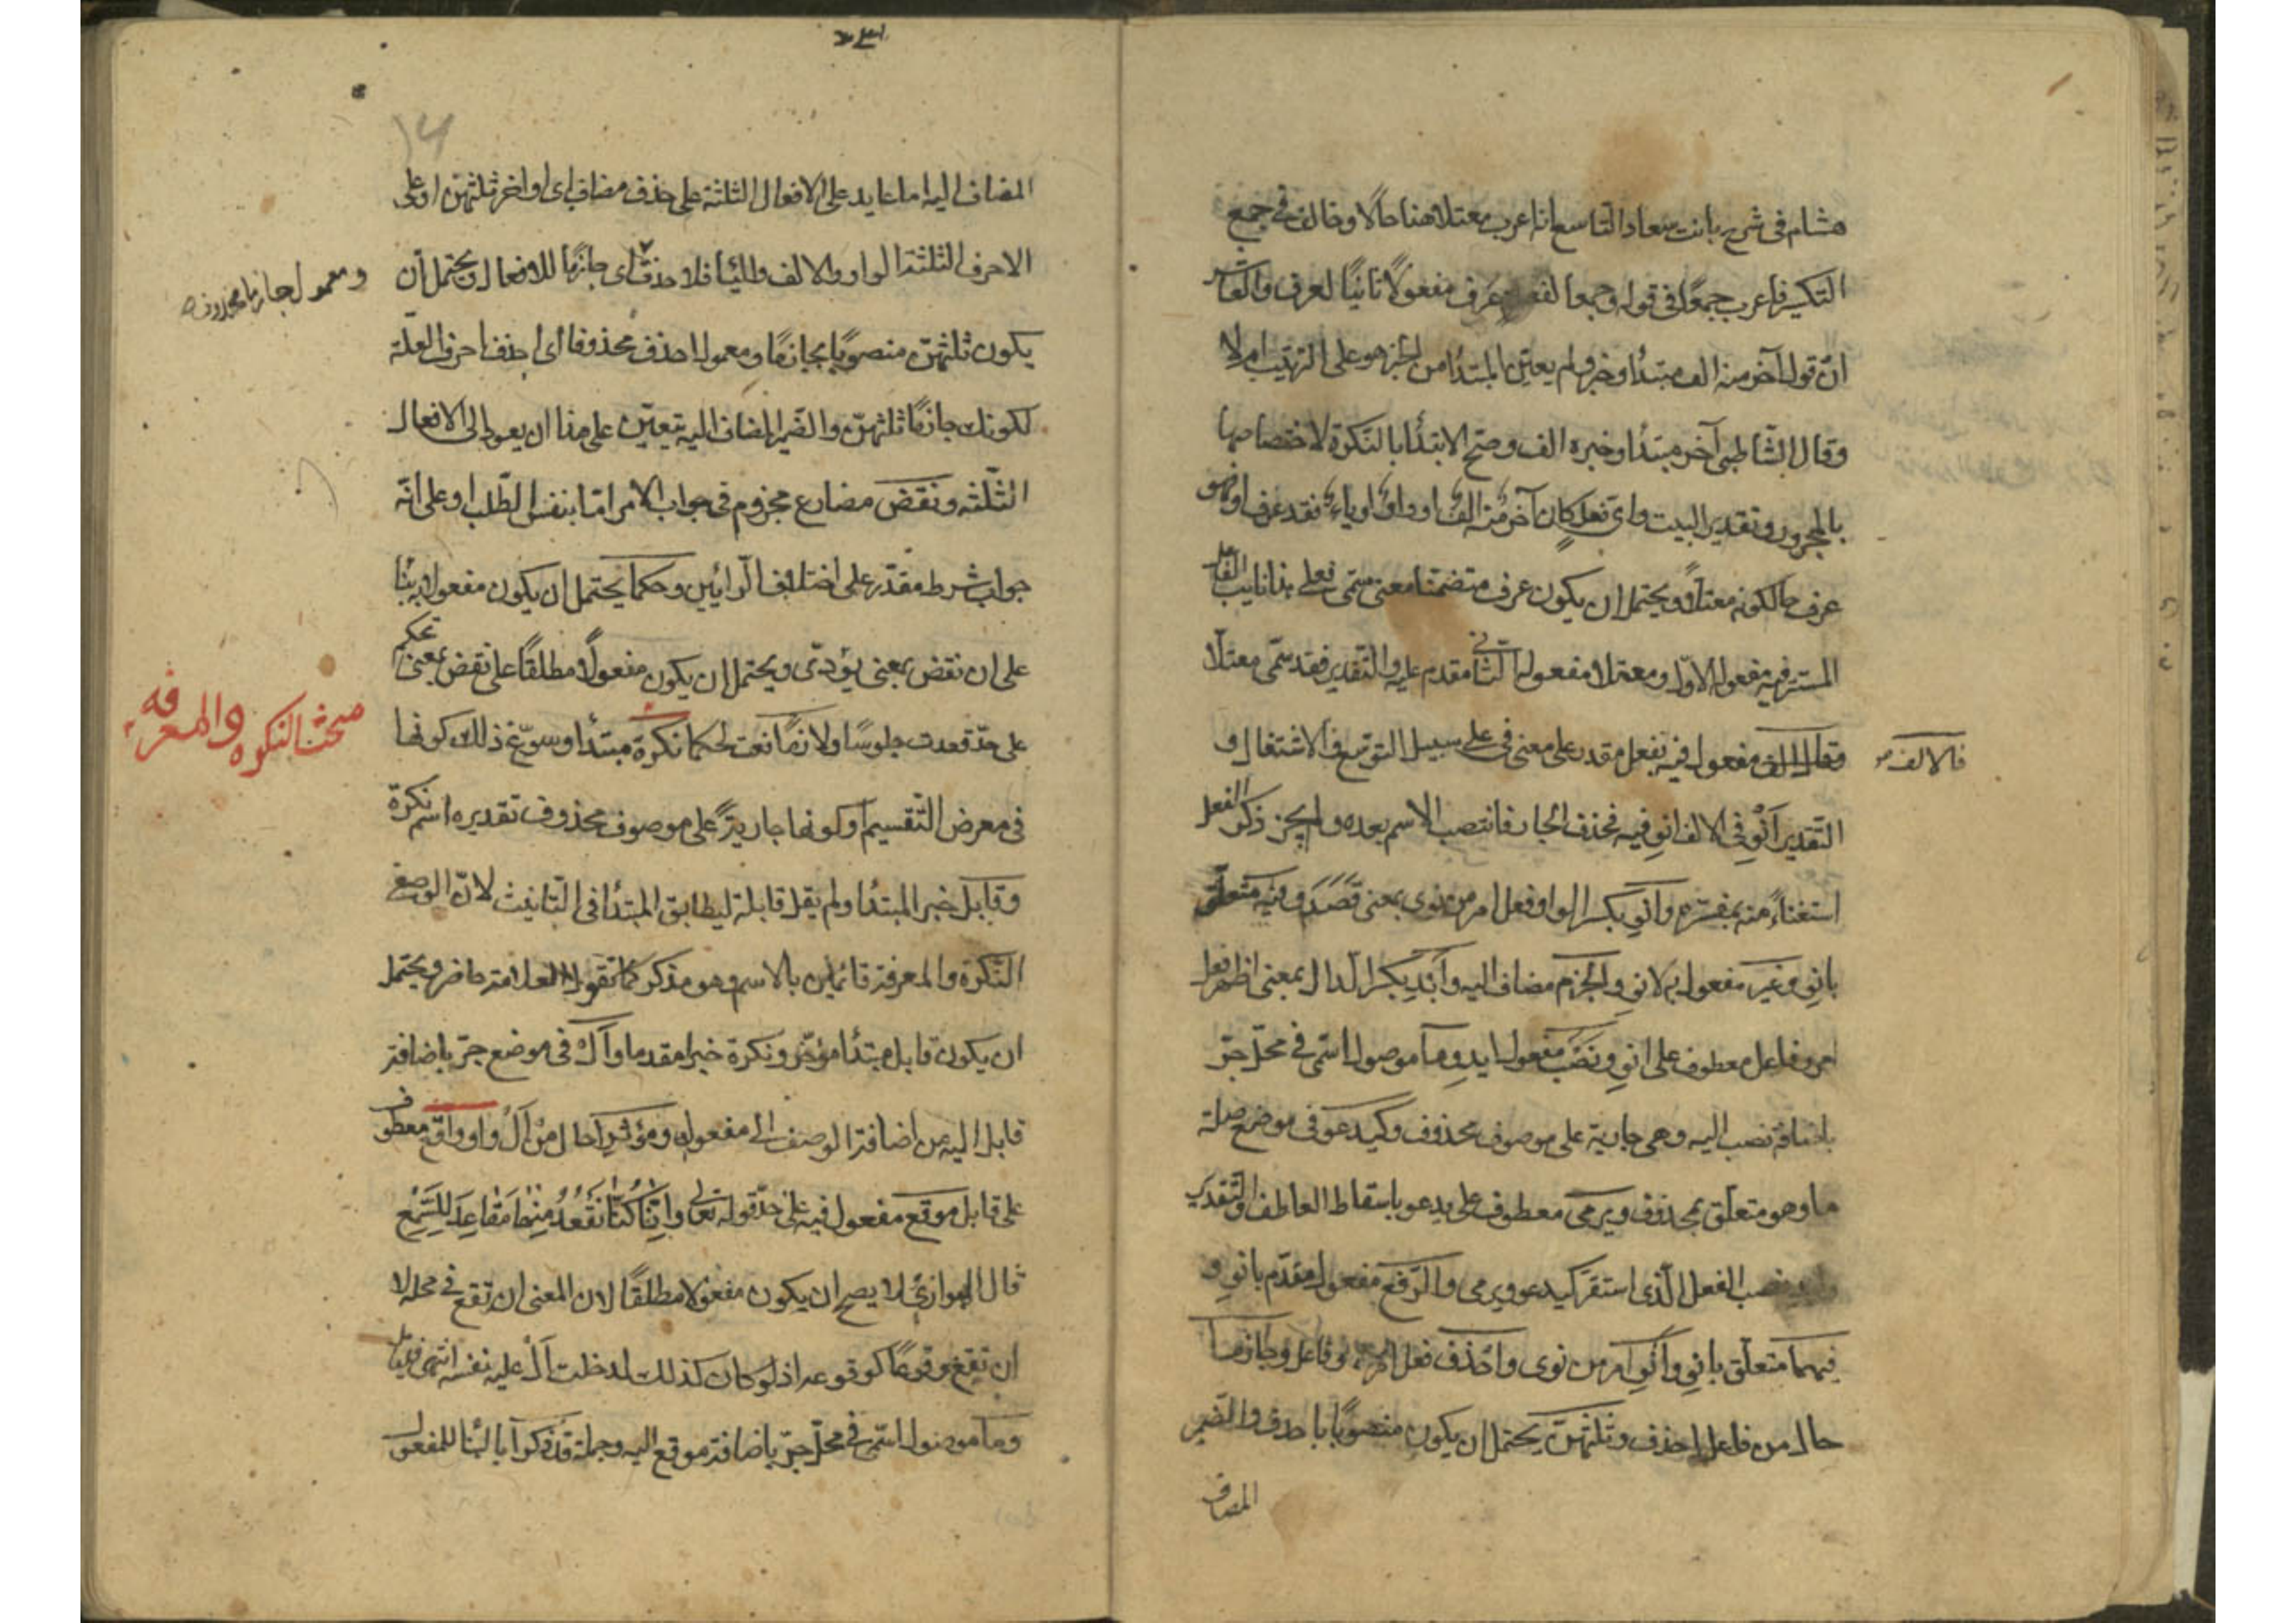 هشام فى شرح بانت سعاد التاسع انه اعرب معتلا هنا حالا وخالف فى جمع
التكسير فاعرب جمعًا فى قوله وجمعا لفعلة عرف مفعولًا ثانيًا لعرف والعاشر
انّ قوله آخر منه الف مبتدأ وخبر ولم يعين المبتدا من الخبر هو على الترتيب ام لا
وقال الشّاطبى آخر مبتدا وخبره الف وصح الابتدأ بالنكرة لاختصاصها
بالمجرور وتقدير البيت واى فعل كان آخر منه الف او واو او ياء فقد عرف او فهو
عرف حالكونه معتلًا ويحتمل ان يكون عرف متضمنا معنى سمّى فعلى هذا نايب الفاعل
المستتر فيه مفعوله الاوّل ومعتلا مفعوله الثانى مقدم عليه والتقدير فقد سمّى معتلًا
وقال الالف مفعول فيه بفعل مقدر على معنى فى على سبيل التوسّع فى الاشتغال و
فالالف
التّقدير آنْوِ فى الالف انوِ فيه فحذف الجار فانتصب الاسم بعده ولم يجز ذكر الفعل
استغناءً منه بمفسّره وانوِ بكسر الواو فعل امر من نوى بمعنى قَصَدَ وفيه متعلّق
بانوِ وغير مفعول به لانوِ والجزم مضاف اليه وآبدِ بكسر الدال بمعنى اظهر فعل
امر وفاعل معطوف على انوِ ونصب مفعول ابدِ وما موصول اسمّى فى محلّ جرّ
باضافة نصب اليه وهى جارية على موصوف محذوف وكيدعو فى موضع صلة
ما وهو متعلّق بمحذوف ويرمى معطوف على يدعو باسقاط العاطف والتّقدير
وابد نصب الفعل الّذى استقر كيدعو ويرمى والرّفع مفعول مقدّم بانوِ و
فيهما متعلّق بانوِ وانوِ امر من نوى واحذف فعل امر وفاعل وجازما
حال من فاعل احذف وثلثهنّ يحتمل ان يكون منصوبًا باحذف والضّمير
المضاف
١٤
المضاف اليه اما عايد على الافعال الثلثة على حذف مضاف اى اواخر ثلثهن او على
الاحرف الثلثة الواو والالف واليأ فلا حذف اى جازمًا للافعال ويحتمل أن
ومعمول جازما محذوف
يكون ثلثهنّ منصوبًا بجازمًا ومعمول احذف محذوفا اى احذف احرف العلّة
لكونك جازمًا ثلثهنّ والضّمير المضاف اليه يتعيّن على هذا ان يعود الى الافعال
الثّلثه وتقض مضارع مجزوم فى جواب الأمر امّا بنفس الطّلب او على انّه
جواب شرط مقدّر على اختلاف الرّائيين وحكما يحتمل ان يكون مفعولا به بنا
على ان تقض بمعنى يؤدّى ويحتمل ان يكون مفعولًا مطلقًا على تقض بمعنى تحكم
على حدّ قعدت جلوسًا ولازمًا نعت لحكما نكرة مبتدأ وسوّغ ذلك كونها
مبحث النكره والمعرفه
فى معرض التّقسيم او كونها جاريةً على موصوف محذوف تقديره اسم نكرة
وقابل خبر المبتدأ ولم يقل قابلة ليطابق المبتدأ فى التّانيث لانّ الوصف
النّكرة والمعرفة قائمين بالاسم وهو مذكر كما تقول العلامة حاضر ويحتمل
ان يكون قابل مبتدأ مؤخّر ونكرة خبرا مقدما وآل فى موضع جرّ باضافة
قابل اليه من اضافة الوصف الى مفعوله ومؤثّرا حال من آل واو واقع معطوف
على قابل موقع مفعول فيه على حدّ قوله تعالى وانّا كنّا نقعد منها مقاعد للسّمع
قال الهوارىّ لا يصح ان يكون مفعولا مطلقًا لان المعنى ان تقع فى محله لا
ان تقع وقوعًا كوقوعه اذ لو كان كذلك لدخلت آل عليه نفسه انتهى
وما موصول اسمّى فى محلّ جرّ باضافة موقع اليه وجملة قد ذكرا بالبنا للمفعول